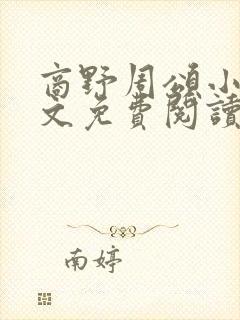 商野周頌小
文免費閱讀
南婷